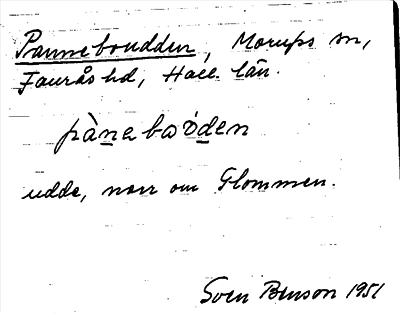 Panneboudden, Morups sn,
Faurås hd, Hall. län.
pànebωòden
udde, norr om Glommen.
Sven Benson 1951